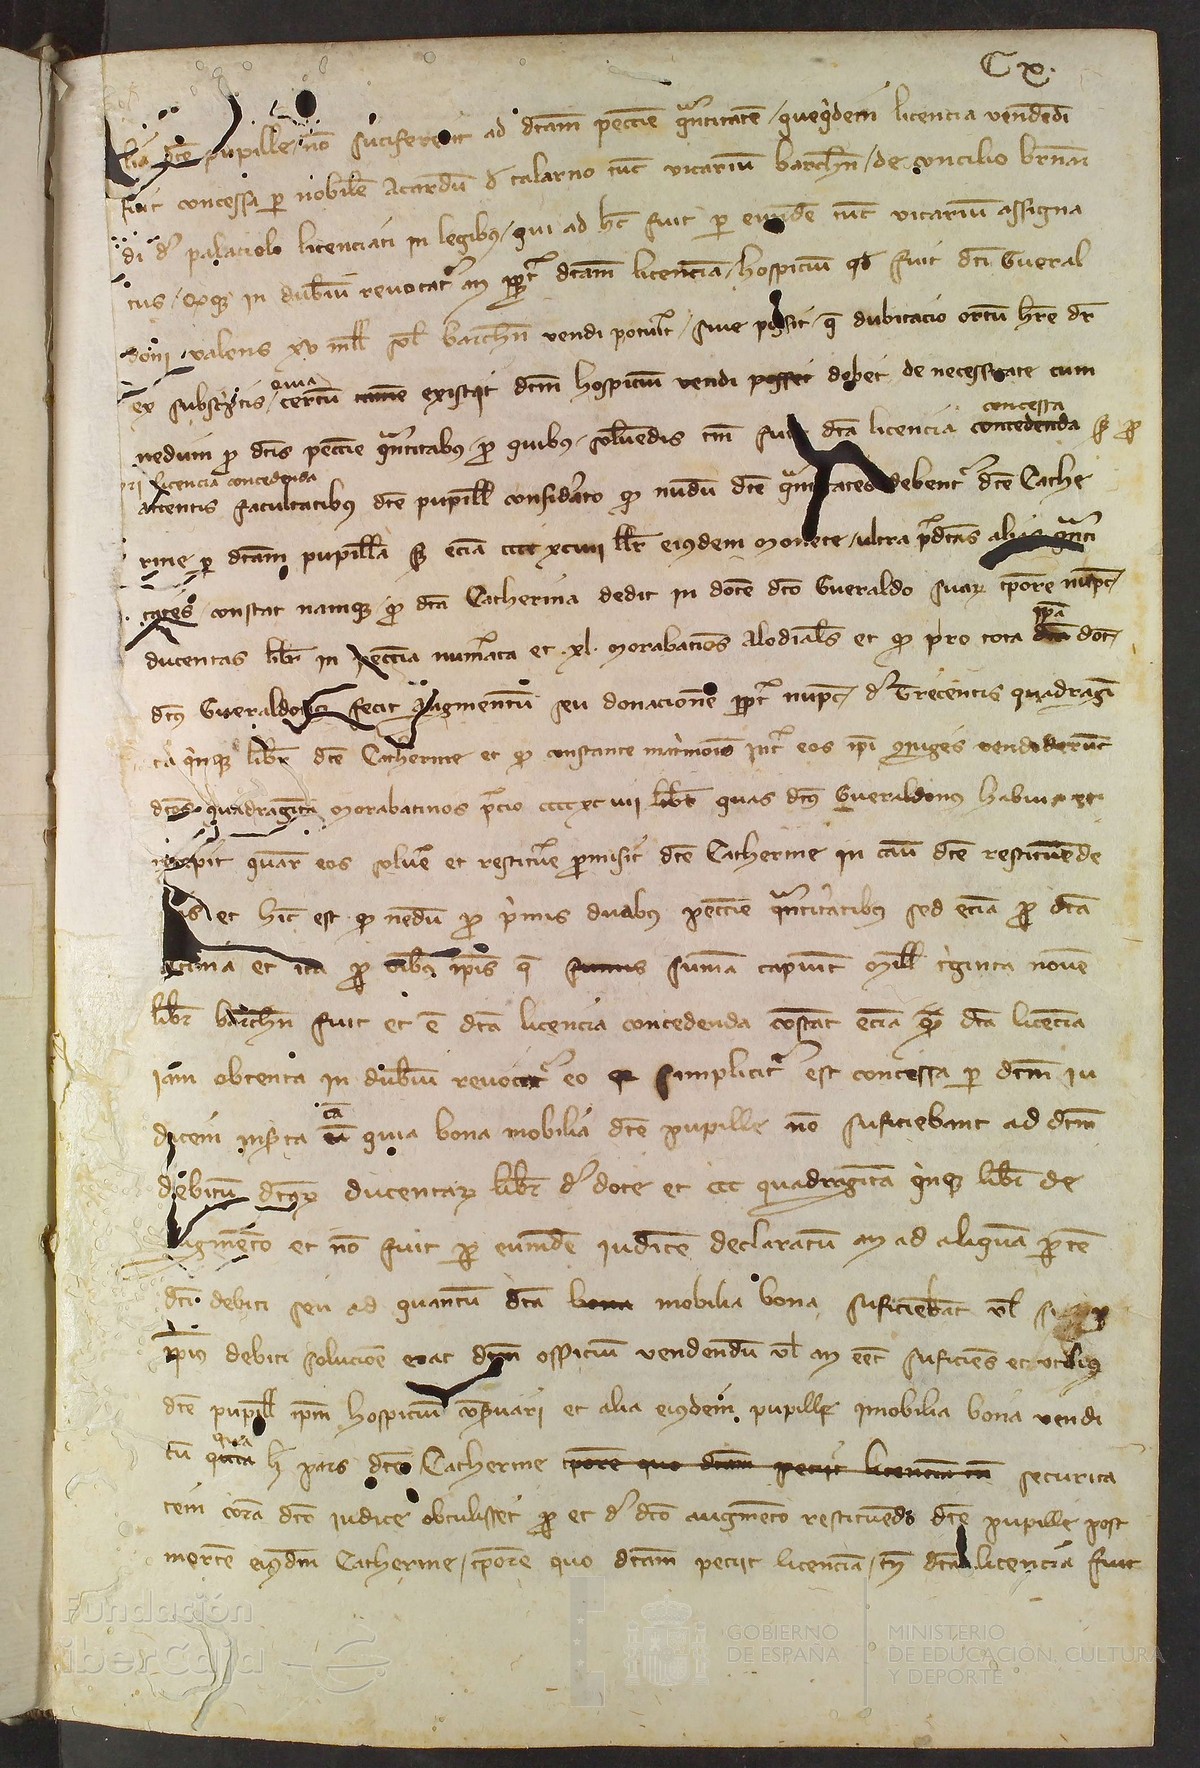 Cx.
lia dce pupille no suficerent ad dcam peccie quantitate / quequidem licencia vendendi
fuit concessa per nobilem Acardu de talarno tunc vicariu barchn / de concilio brnar
di de palaciolo licenciati in legibus / qui ad hec fuit per eumde tunc vicariu assigna
tus / in dubiu revocatur an dcam licencia / hospiciu qd fuit dci Gueral
doni valens xv mill sol barchn vendi potuit / sive possit / que dubitacio ortu hre dr
ex subscriptis / quia certu tame existat dcm hospiciu vendi posset debet de necessitate cum
nedum pro dcis peccie quantitatibus / pro quibus solvendis tm fuit dca licencia concedenda concessa
licencia concedenda
attentis facultatibus dce pupill considerato quod nundu dce quantitates debentur dce Cathe
rine per dcam pupilla ecia cccc xcviii llr eiusdem monete / ultra predcas alias quanti
tates / constat namque quod dca Catherina dedit in dote dco Gueraldo suar tpore nupc
ducentas libr in peccia numerata et xl morabatios alodiales et quod pro tota dca ipa dot
dcus Gueraldo fecit augmentu seu donacione nupc de Trecentis quadragi
ta quinque libr dce Catherine et quod constante matrimonio inter eos ipi coniuges vendiderunt
dcos quadraginta morabatinos precio cccc xc viii libr quas dcus Gueraldonus habuit et
recepit quar eos solvere et restituere promisit dce Catherine in casu dce restituende
et hic est quod nedu pro primis duabus peccie quantitatibus sed ecia pro dca
et ita pro oibus ipis que sumus suma capiunt mill triginta nove
libr barchn fuit et e dca licencia concedenda costat ecia quod dca licencia
iam obtenta in dubiu revocatur eo simpliciter est concessa per dcm iu
dicem inserta ea ca quia bona mobilia dce pupille no suficiebant ad dcm
debitu ducentar libr de dote et ccc quadraginta quinque libr de
augmento et no fuit per eumde iudice declaratu an ad aliqua parte
dci debiti seu ad quantu dca bona mobilia bona suficiebat vl
ipius debiti solucione erat dcm ospiciu vendendu vl an eet suficies et
dce pupill ipm hospiciu conservari et alia eiusdem pupille imobilia bona vendi
tu quia quia pars dce Catherine tpore quo dcam petiit licencia securita
tem cora dco iudice obtulisset pro et de dco augmento restituendo dce pupille post
morte eiusdm Catherine / tpore quo dcam petiit licencia / dca licencia fuit
Fundación
iberCaja
GOBIERNO
DE ESPAÑA
MINISTERIO
DE EDUCACIÓN, CULTURA
Y DEPORTE